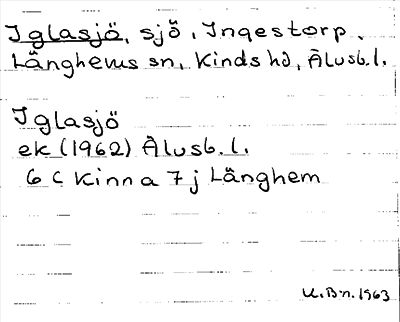 Iglasjö, sjö, Ingestorp,
Länghems sn, Kinds hd, Älvsb.l.
Iglasjö
ek (1962) Älvsb.l.
6 C Kinna 7 j Länghem
U.Bn. 1963